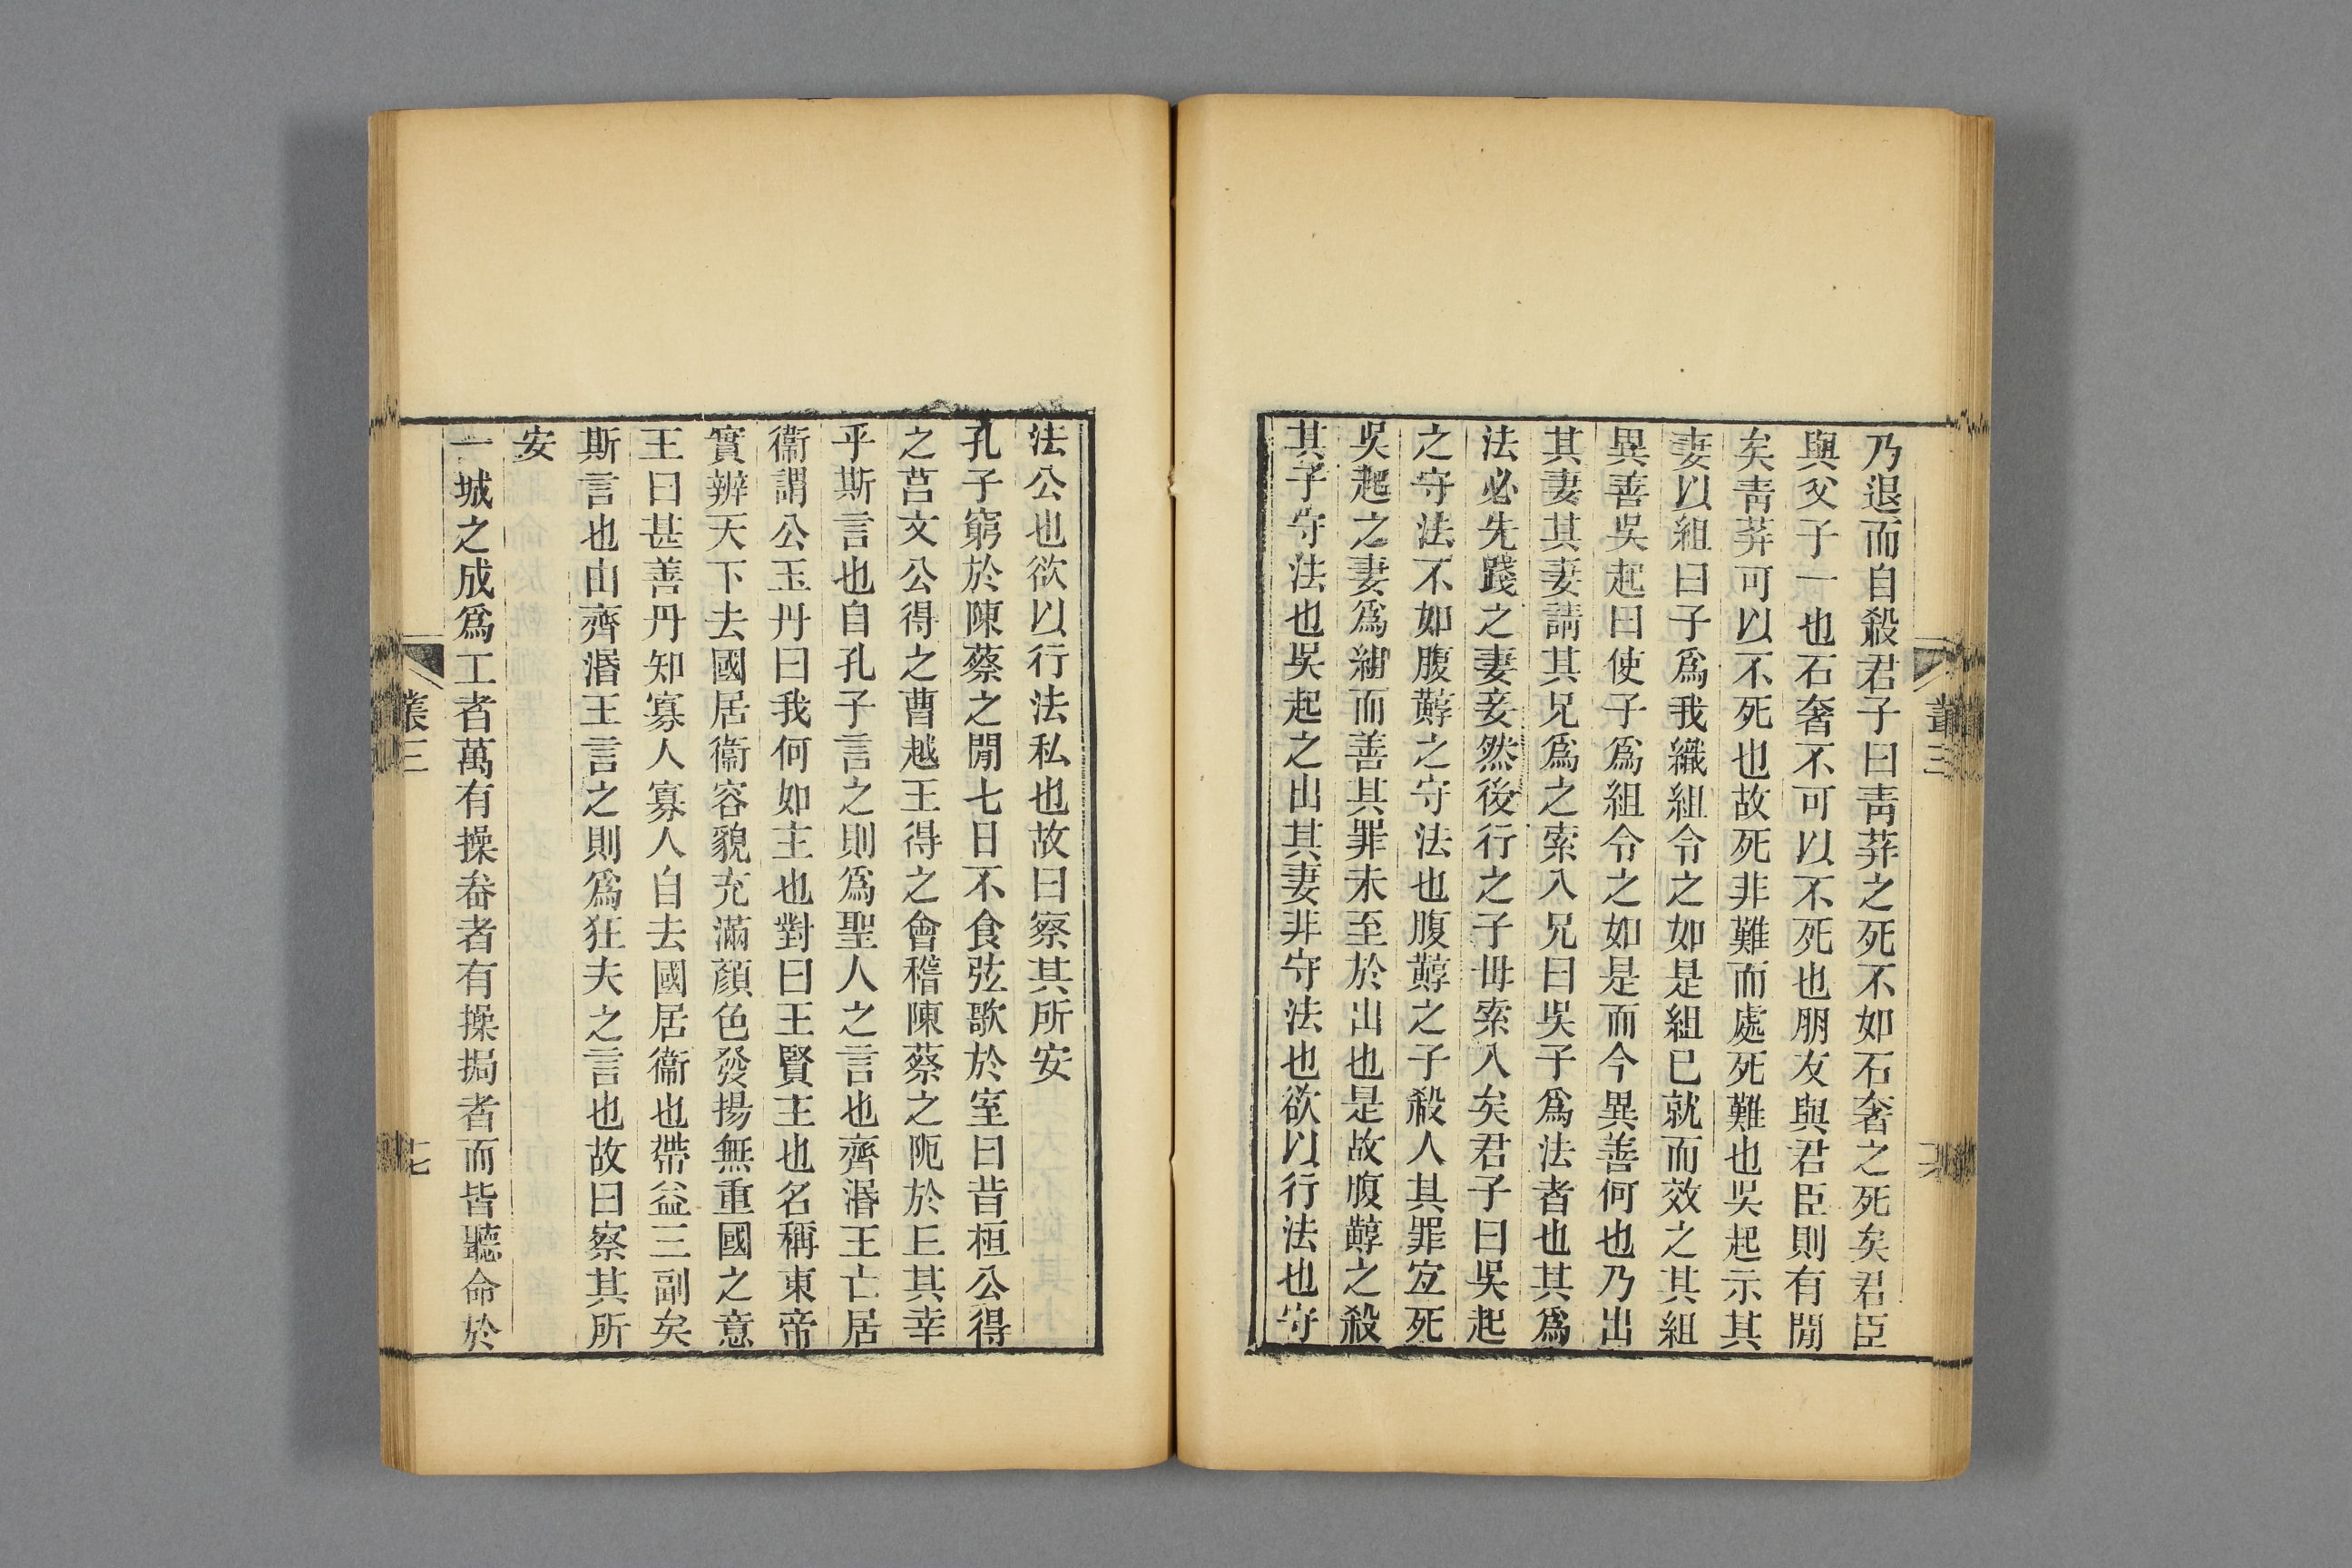 乃退而自殺君子曰靑荓之死不如石奢之死矣君臣
與父子一也石奢不可以不死也朋友與君臣則有閒
矣靑荓可以不死也故死非難而處死難也吳起示其
妻以組曰子爲我織組令之如是組已就而效之其組
異善吳起曰使子爲組令之如是而今異善何也乃出
其妻其妻請其兄爲之索入兄曰吳子爲法者也其爲
法必先踐之妻妾然後行之子毋索入矣君子曰吳起
之守法不如腹䵍之守法也腹䵍之子殺人其罪宜死
吳起之妻爲組而善其罪未至於出也是故腹䵍之殺
其子守法也吳起之出其妻非守法也欲以行法也守
法公也欲以行法私也故曰察其所安
孔子窮於陳蔡之閒七日不食弦歌於室曰昔桓公得
之莒文公得之曹越王得之會稽陳蔡之阨於丘其幸
乎斯言也自孔子言之則爲聖人之言也齊湣王亡居
衞謂公玉丹曰我何如主也對曰王賢主也名稱東帝
實辨天下去國居衞容貌充滿顏色發揚無重國之意
王曰甚善丹知寡人寡人自去國居衞也帶益三副矣
斯言也由齊湣王言之則爲狂夫之言也故曰察其所
安
一城之成爲工者萬有操畚者有操挶者而皆聽命於
叢三
七